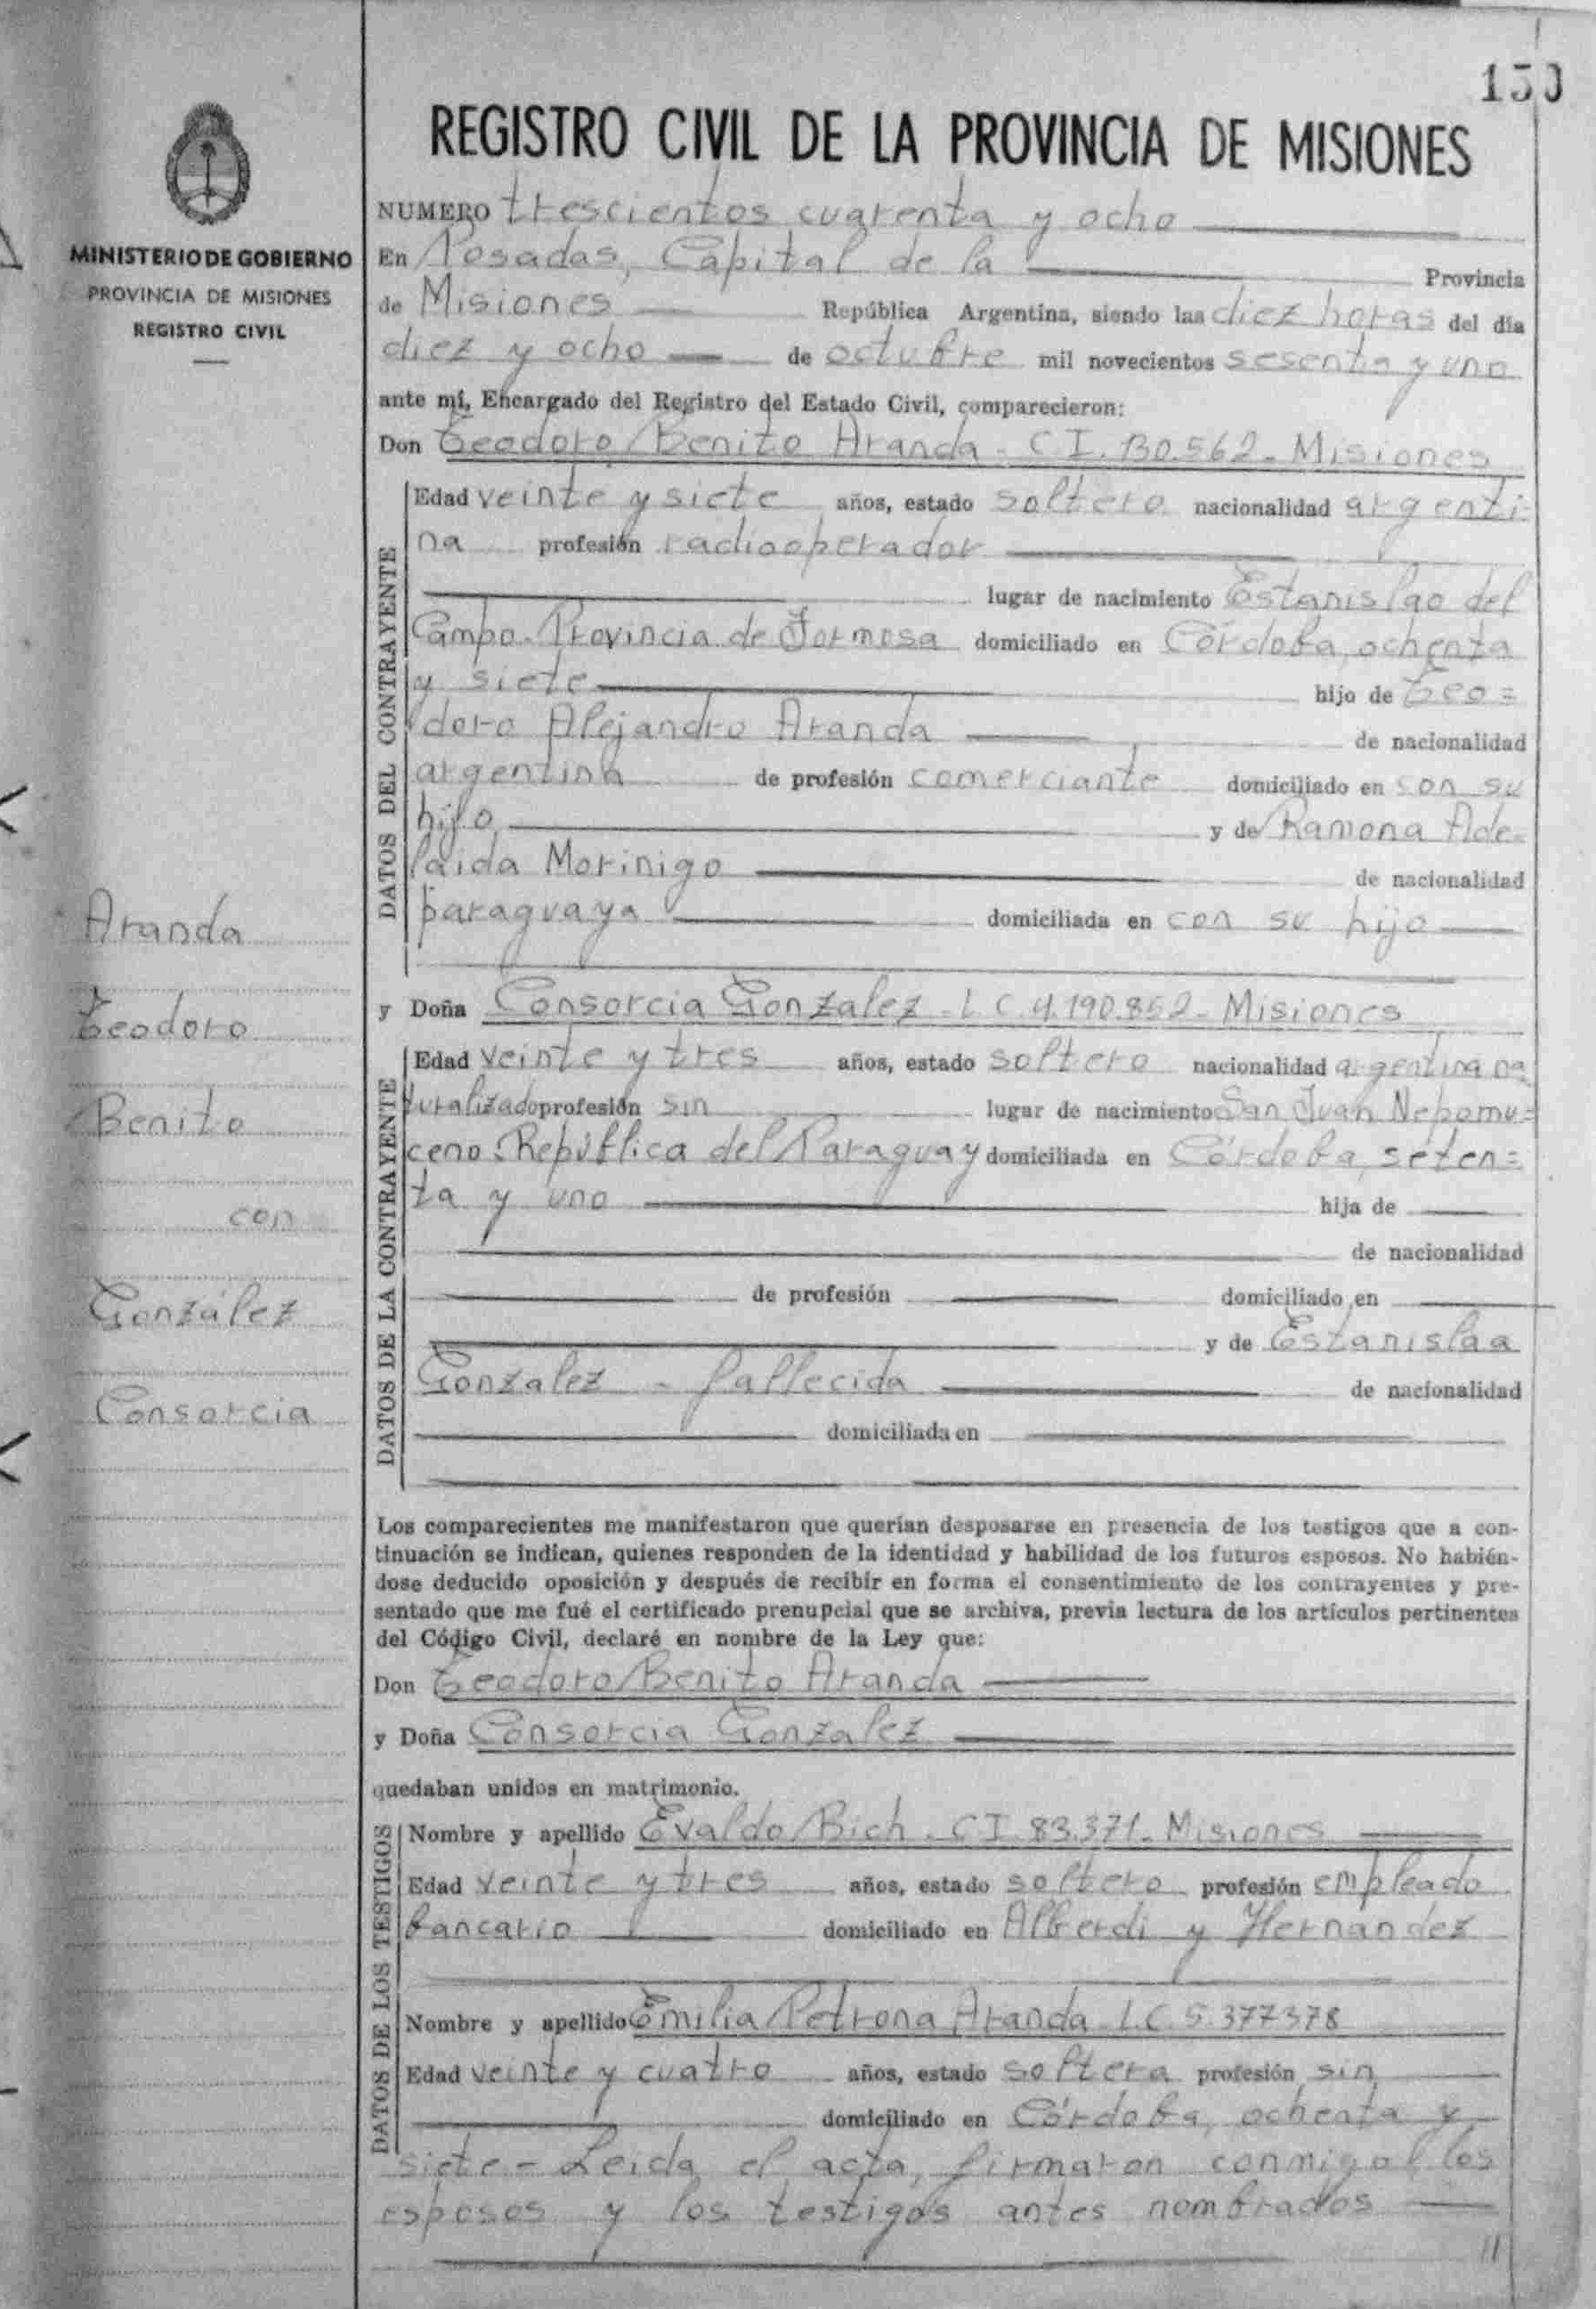 REGISTRO CIVIL DE LA PROVINCIA DE MISIONES
MINISTERIO DE GOBIERNO
PROVINCIA DE MISIONES
REGISTRO CIVIL
NUMERO trescientos cuarenta y ocho
En Posadas, Capital de la Provincia
de Misiones República Argentina, siendo las diez horas del día
diez y ocho de octubre mil novecientos sesenta y uno
ante mí, Encargado del Registro del Estado Civil, comparecieron:
Don Teodoro Benito Aranda - C.I. 130.562 - Misiones
DATOS DEL CONTRAYENTE
Edad veinte y siete años, estado soltero nacionalidad argenti-
na profesión radiooperador
lugar de nacimiento Estanislao del
Campo - Provincia de Formosa domiciliado en Córdoba, ochenta
y siete hijo de Teo=
doro Alejandro Aranda de nacionalidad
argentina de profesión comerciante domiciliado en con su
hijo y de Ramona Ade-
laida Morinigo de nacionalidad
paraguaya domiciliada en con su hijo
y Doña Consorcia Gonzalez - L.C. 4.190.852 - Misiones
DATOS DE LA CONTRAYENTE
Edad veinte y tres años, estado soltero nacionalidad argentina na
turalizado profesión sin lugar de nacimiento San Juan Nepomu=
ceno. República del Paraguay domiciliada en Córdoba, seten=
ta y uno hija de
de nacionalidad
de profesión domiciliado en
y de Estanislaa
Gonzalez - fallecida de nacionalidad
domiciliada en
Aranda
Teodoro
Benito
con
González
Consorcia
Los comparecientes me manifestaron que querían desposarse en presencia de los testigos que a con-
tinuación se indican, quienes responden de la identidad y habilidad de los futuros esposos. No habién-
dose deducido oposición y después de recibir en forma el consentimiento de los contrayentes y pre-
sentado que me fué el certificado prenupcial que se archiva, previa lectura de los artículos pertinentes
del Código Civil, declaré en nombre de la Ley que:
Don Teodoro Benito Aranda
y Doña Consorcia Gonzalez
quedaban unidos en matrimonio.
DATOS DE LOS TESTIGOS
Nombre y apellido Evaldo Bich - C I 83.371 - Misiones
Edad veinte y tres años, estado soltero profesión empleado
bancario domiciliado en Alberdi y Hernandez
Nombre y apellido Emilia Petrona Aranda L.C. 5.377378
Edad veinte y cuatro años, estado soltera profesión sin
domiciliado en Córdoba, ochenta y
siete - Leida el acta, firmaron conmigo los
esposos y los testigos antes nombrados